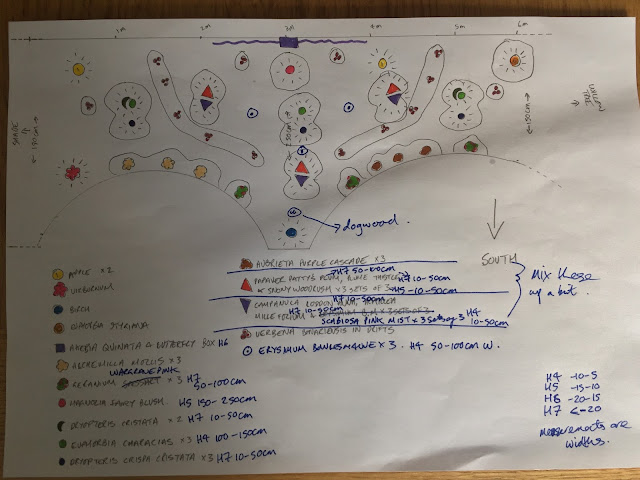 1m 2m 3m 4m 5m 6m
SHADE
190cm
150cm
150cm
TREE
dogwood.
SOUTH
Mix these
up a bit.
APPLE x2
VIBURNUM
BIRCH
AKEBIA QUINATA & BUTTERFLY BOX H6
ALCHEMILLA MOLLIS x3
WARGRAVE PINK
GERANIUM x3 H7
50-100cm
MAGNOLIA JANEY BLUSH. H5 150-250cm
DRYOPTERIS CRISTATA x2 H7 10-50cm
EUPHORBIA CHARACIAS x3 H4 100-150cm
DRYOPTERIS CRISPA CRISTATA x3 H7 10-50cm
AUBRIETA PURPLE CASCADE x3
H7 50-100cm
PAPAVER PATTY'S PLUM, PLUME THISTLE H7 10-50cm
& SNOWY WOODRUSH x3 SETS OF 3 H5 10-50cm
H7 10-50cm
CAMPANULA LODDON ANNA,
H7 10-50cm
SCABIOSA PINK MIST x3 sets of 3 H4
10-50cm
VERBENA BONARIENSIS IN DRIFTS
ERYSIMUM x3. H4 50-100cm W.
H4 -10-5
H5 -15-10
H6 -20-15
H7 <-20
measurements are
widths.